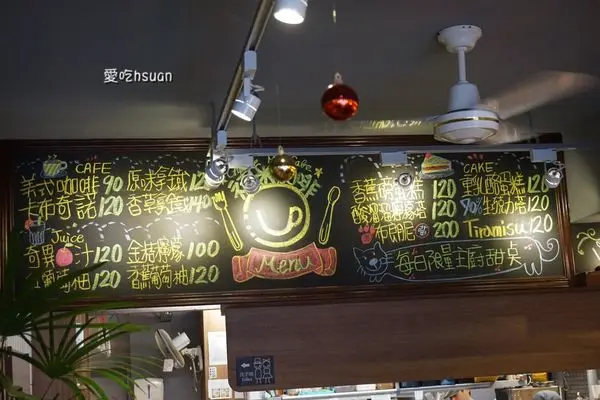 愛吃hsuan
CAFE
美式咖啡 90 原味拿鐵 120
卡布奇諾 120 香草拿鐵 140
Juice
奇異 汁 120 金桔檸檬 100
葡萄柚 120 香蕉葡萄柚 120
Menu
CAKE
120 120
120 90% 生巧克力塔 120
布朗尼 200 Tiramisu 120
每日限量主廚甜點